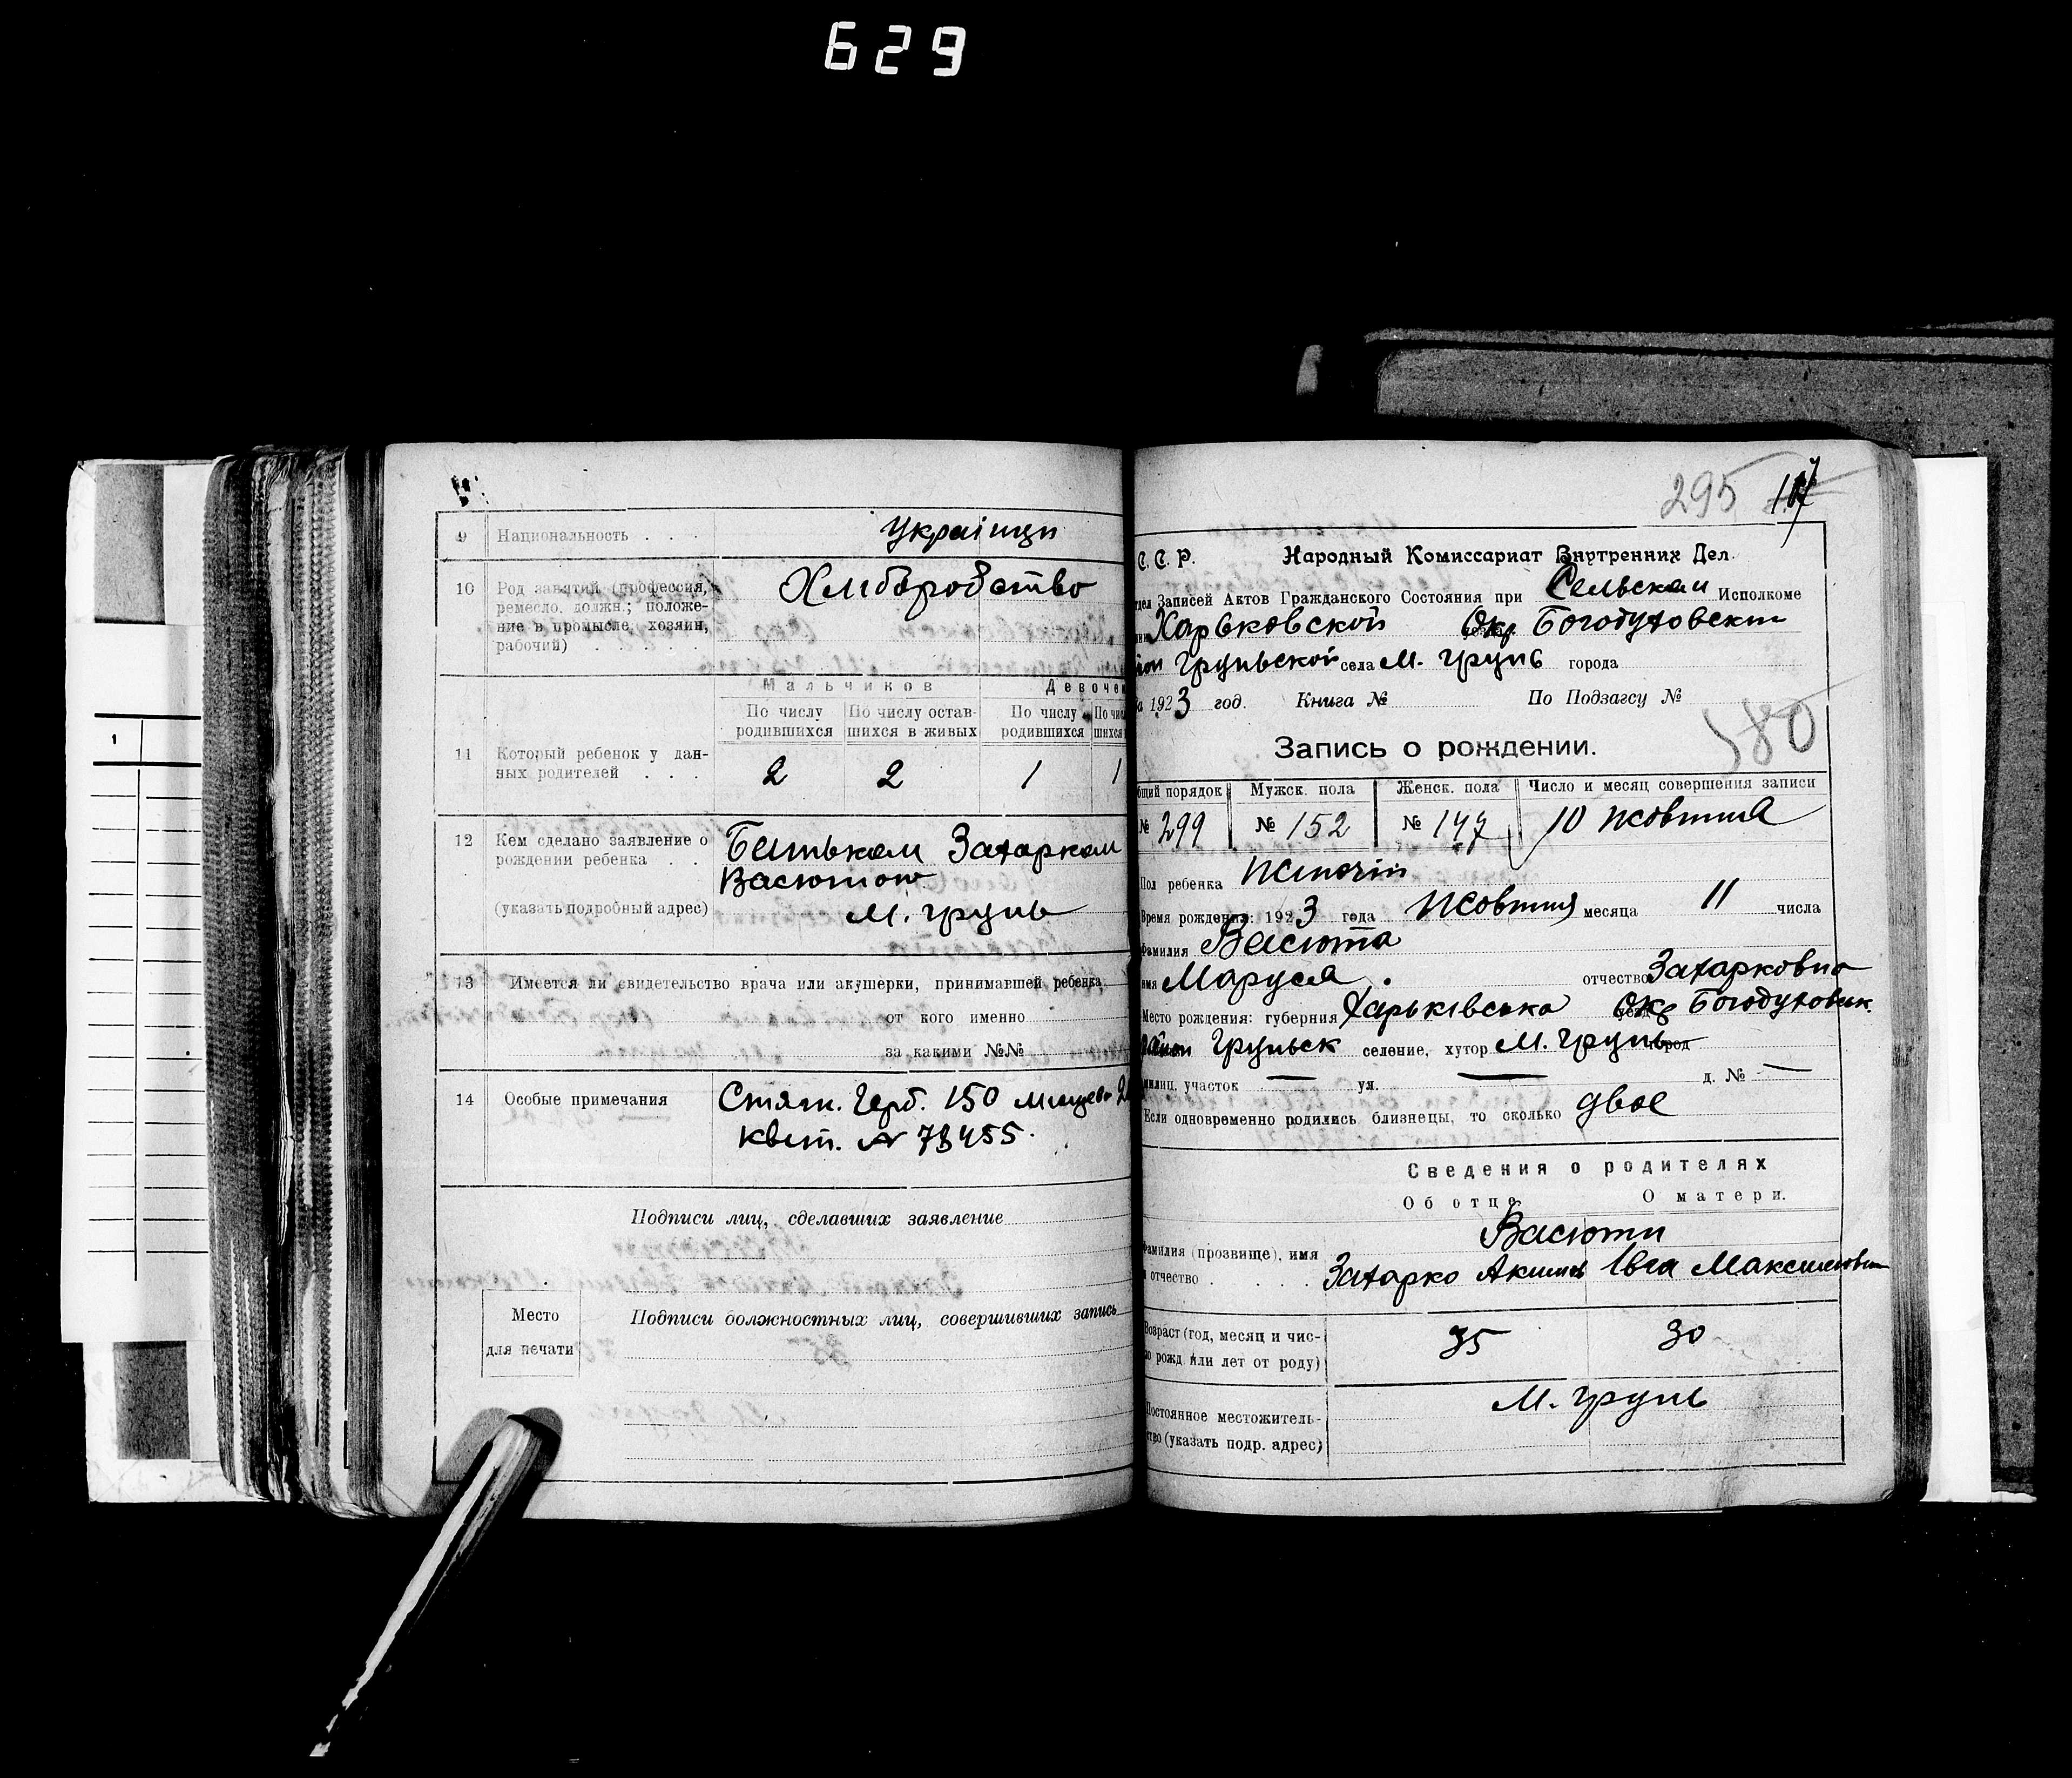 629
9 Национальность . . . Українци
10 Род занятий (профессия, Хліборобство
ремесло, должн.; положе-
ние в промысле, хозяин,
рабочий) . . . . .
Мальчиков Девочек
По числу По числу остав- По числу По чис
родившихся шихся в живых родившихся шихся
11 Который ребенок у дан-
ных родителей . . . 2 2 1 1
12 Кем сделано заявление о Батьком Захарком
рождении ребенка . . Васютою
(указать подробный адрес) М. Грунь
13 Имеется ли свидетельство врача или акушерки, принимавшей ребенка,
от кого именно
за какими №№
14 Особые примечания Стягн. Герб. 150 місцеви 2
Квит. № 73455.
Подписи лиц, сделавших заявление
Место Подписи должностных лиц, совершивших запись
для печати
295 107
С. С. Р. Народный Комиссариат Внутренних Дел.
дел Записей Актов Гражданского Состояния при Сельском Исполкоме
Харьковской Окр Богодуховском
йон Груньской села М. Грунь города
а 1923 год. Книга № По Подзагсу №
180
Запись о рождении.
бщий порядок Мужск. пола Женск. пола Число и месяц совершения записи
№ 299 № 152 № 147 10 жовтня
Пол ребенка Жіночій
Время рождения: 1923 года Жовтня месяца 11 числа
Фамилия Васюта
имя Маруся . отчество Захарковна
Место рождения: губерния Харьківська Окр Богодуховск.
район Груньск селение, хутор М. Грунь город
милиц. участок — ул. — д. № —
Если одновременно родились близнецы, то сколько двое
Сведения о родителях
Об отце О матери.
Васюти
Фамилия (прозвище), имя
и отчество . . . . Захарко Акимов Івга Максимовна
Возраст (год, месяц и чис- 35 30
ло рожд или лет от роду)
М. Грунь
Постоянное местожитель-
ство (указать подр. адрес)